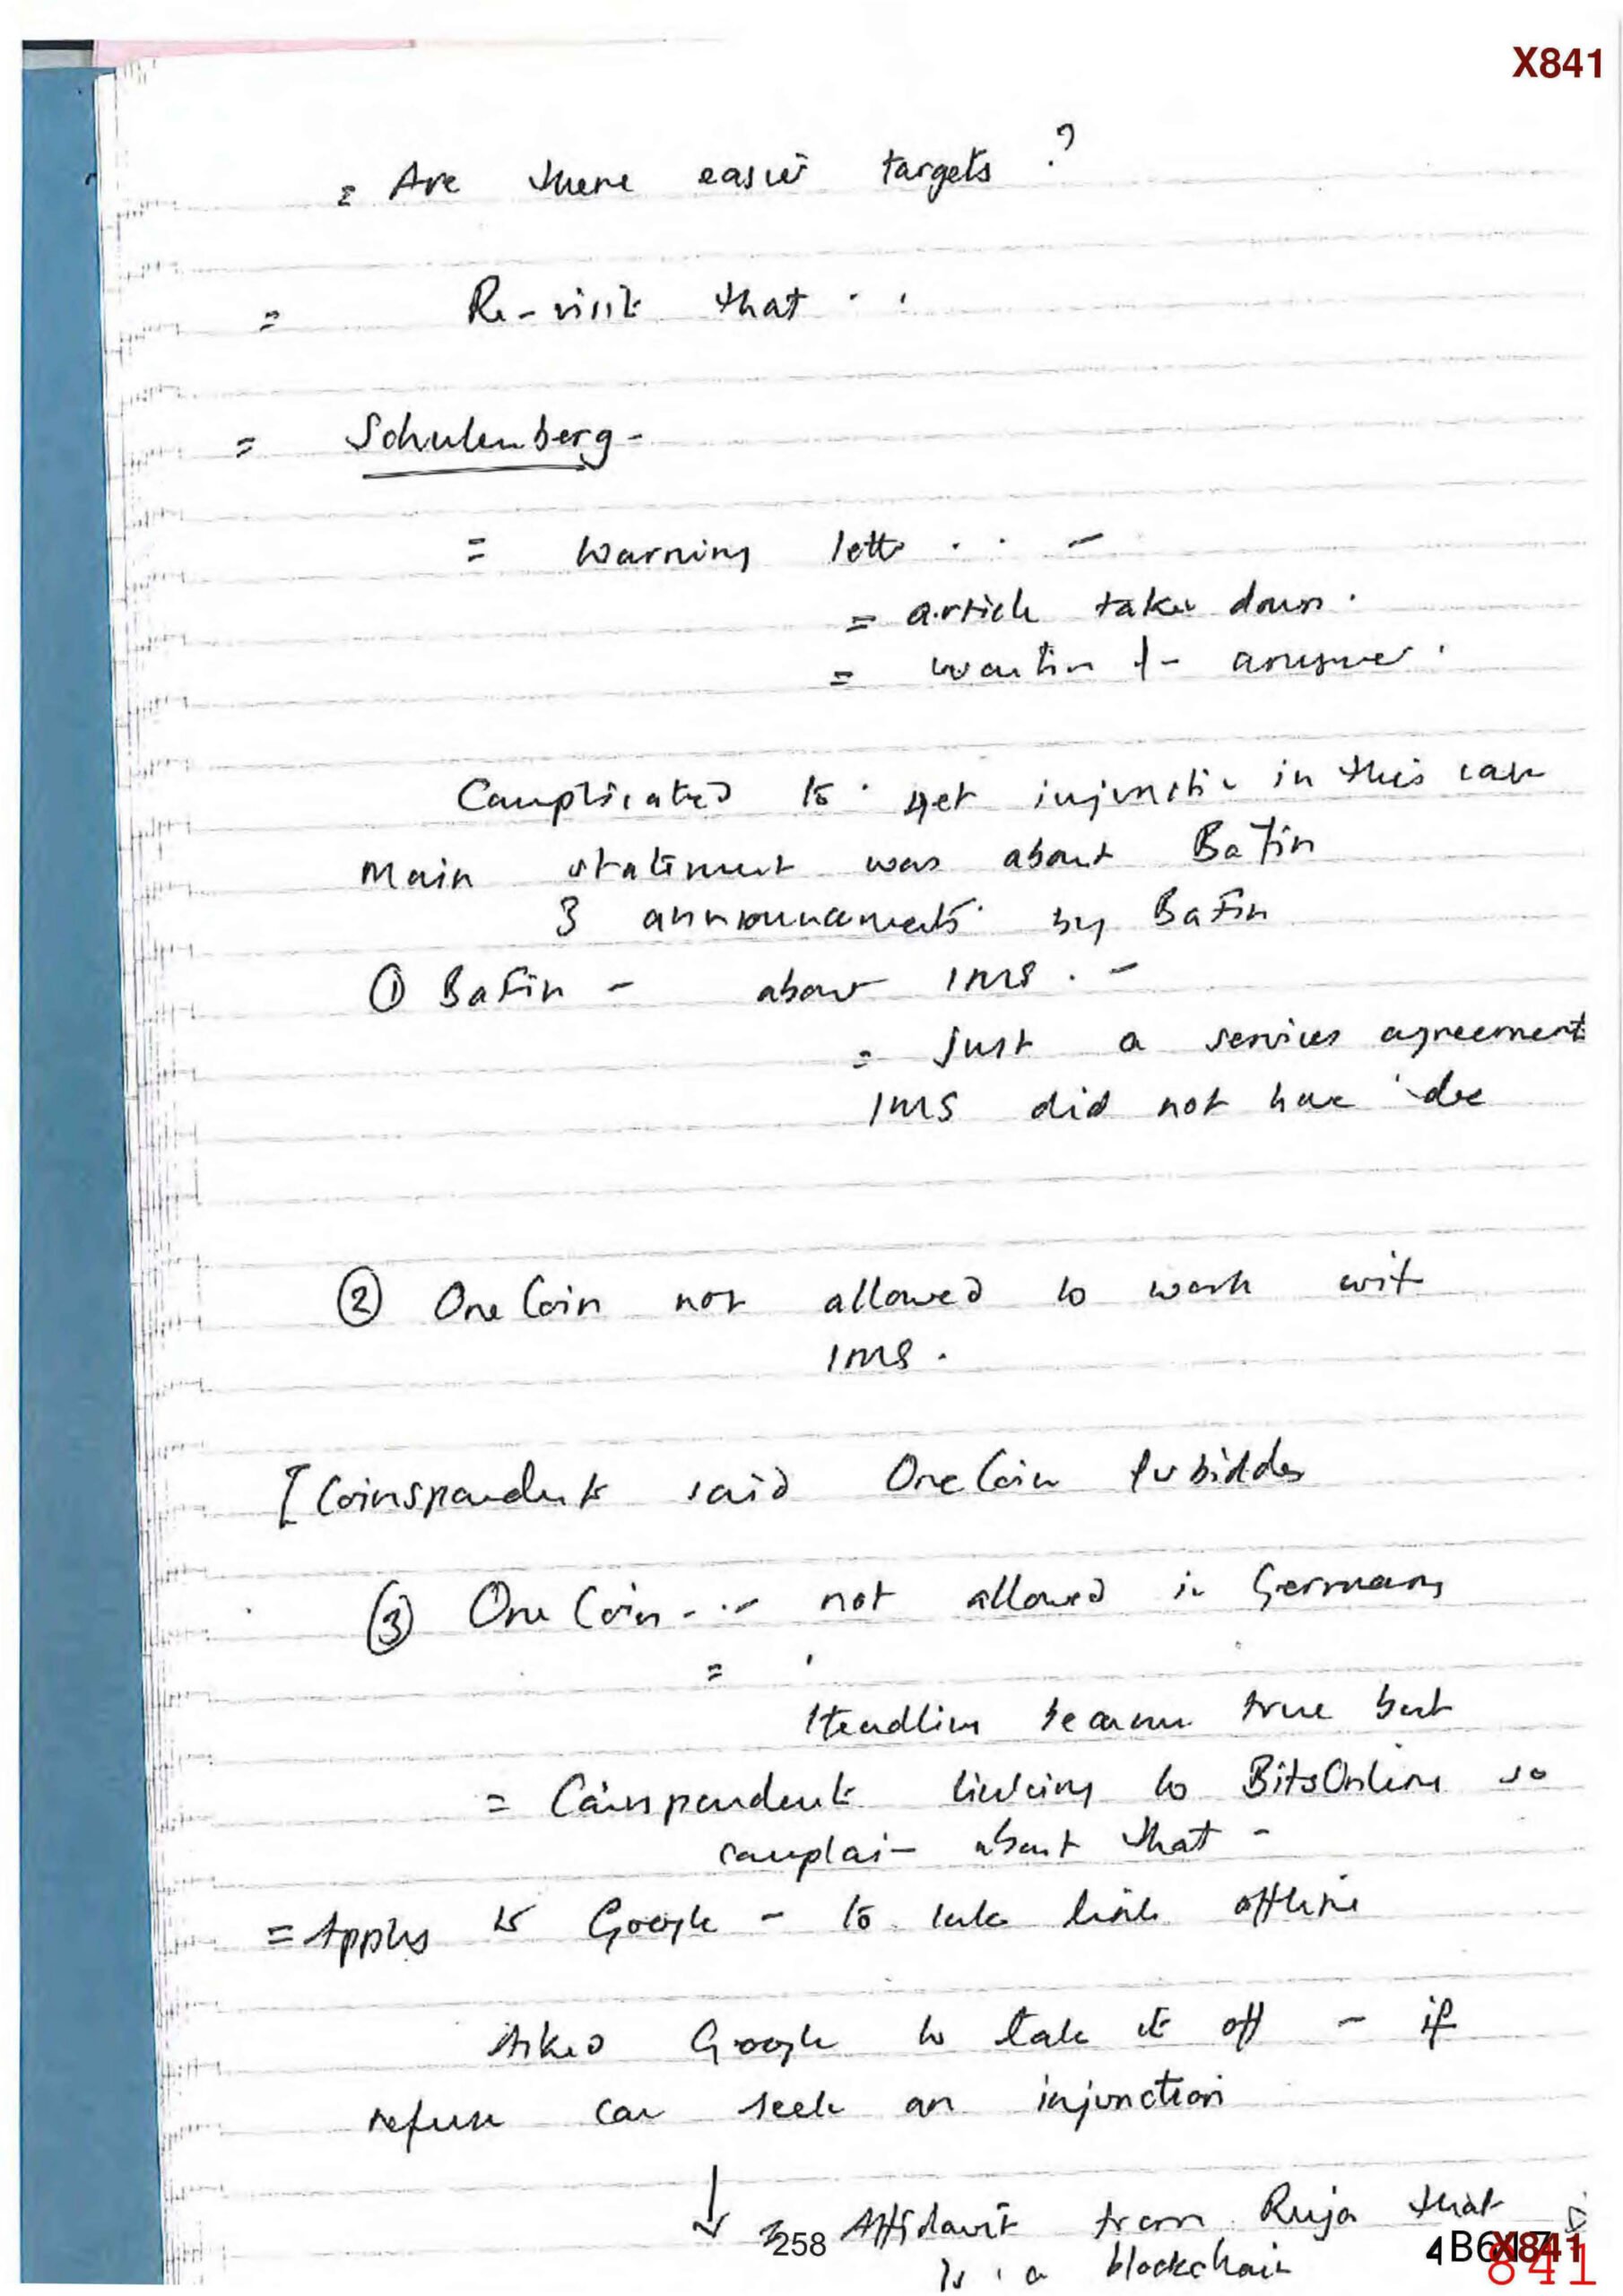 X841
= Are there easier targets ?
= Re-visit that . .
= Schulenberg -
= Warning lett . . -
= article taken down .
= waitin f- answer .
Complicated to get injunction in this case
Main statement was about BaFin
3 announcements by BaFin
① BaFin - about IMS . -
= just a services agreement
IMS did not have
② OneCoin not allowed to work wit
IMS .
[ Coinspondent said OneCoin forbidden
③ OneCoin - . - not allowed in Germany
=
Headline true but
= Coinspondent linking to BitsOnline so
complain about that -
= Apply to Google - to take link offline
Asked Google to take it off - if
refuse can seek an injunction
↓ Affidavit from Ruja that
is a blockchain
258
X841
841